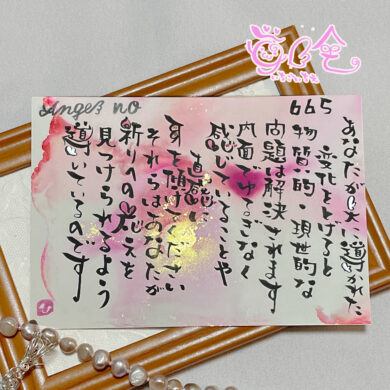 angel no
665
あなたが天に導かれた
変化をとげると
物質的・現世的な
問題は解決されます
内面でゆるぎなく
感じていることや
直感に
耳を傾けてください
それらはあなたが
祈りへの応えを
見つけられるよう
導いているのです